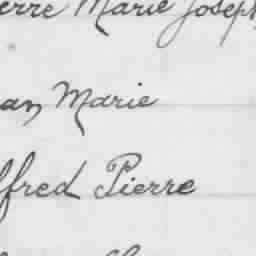 erre Marie Joseph
an Marie
lfred Pierre